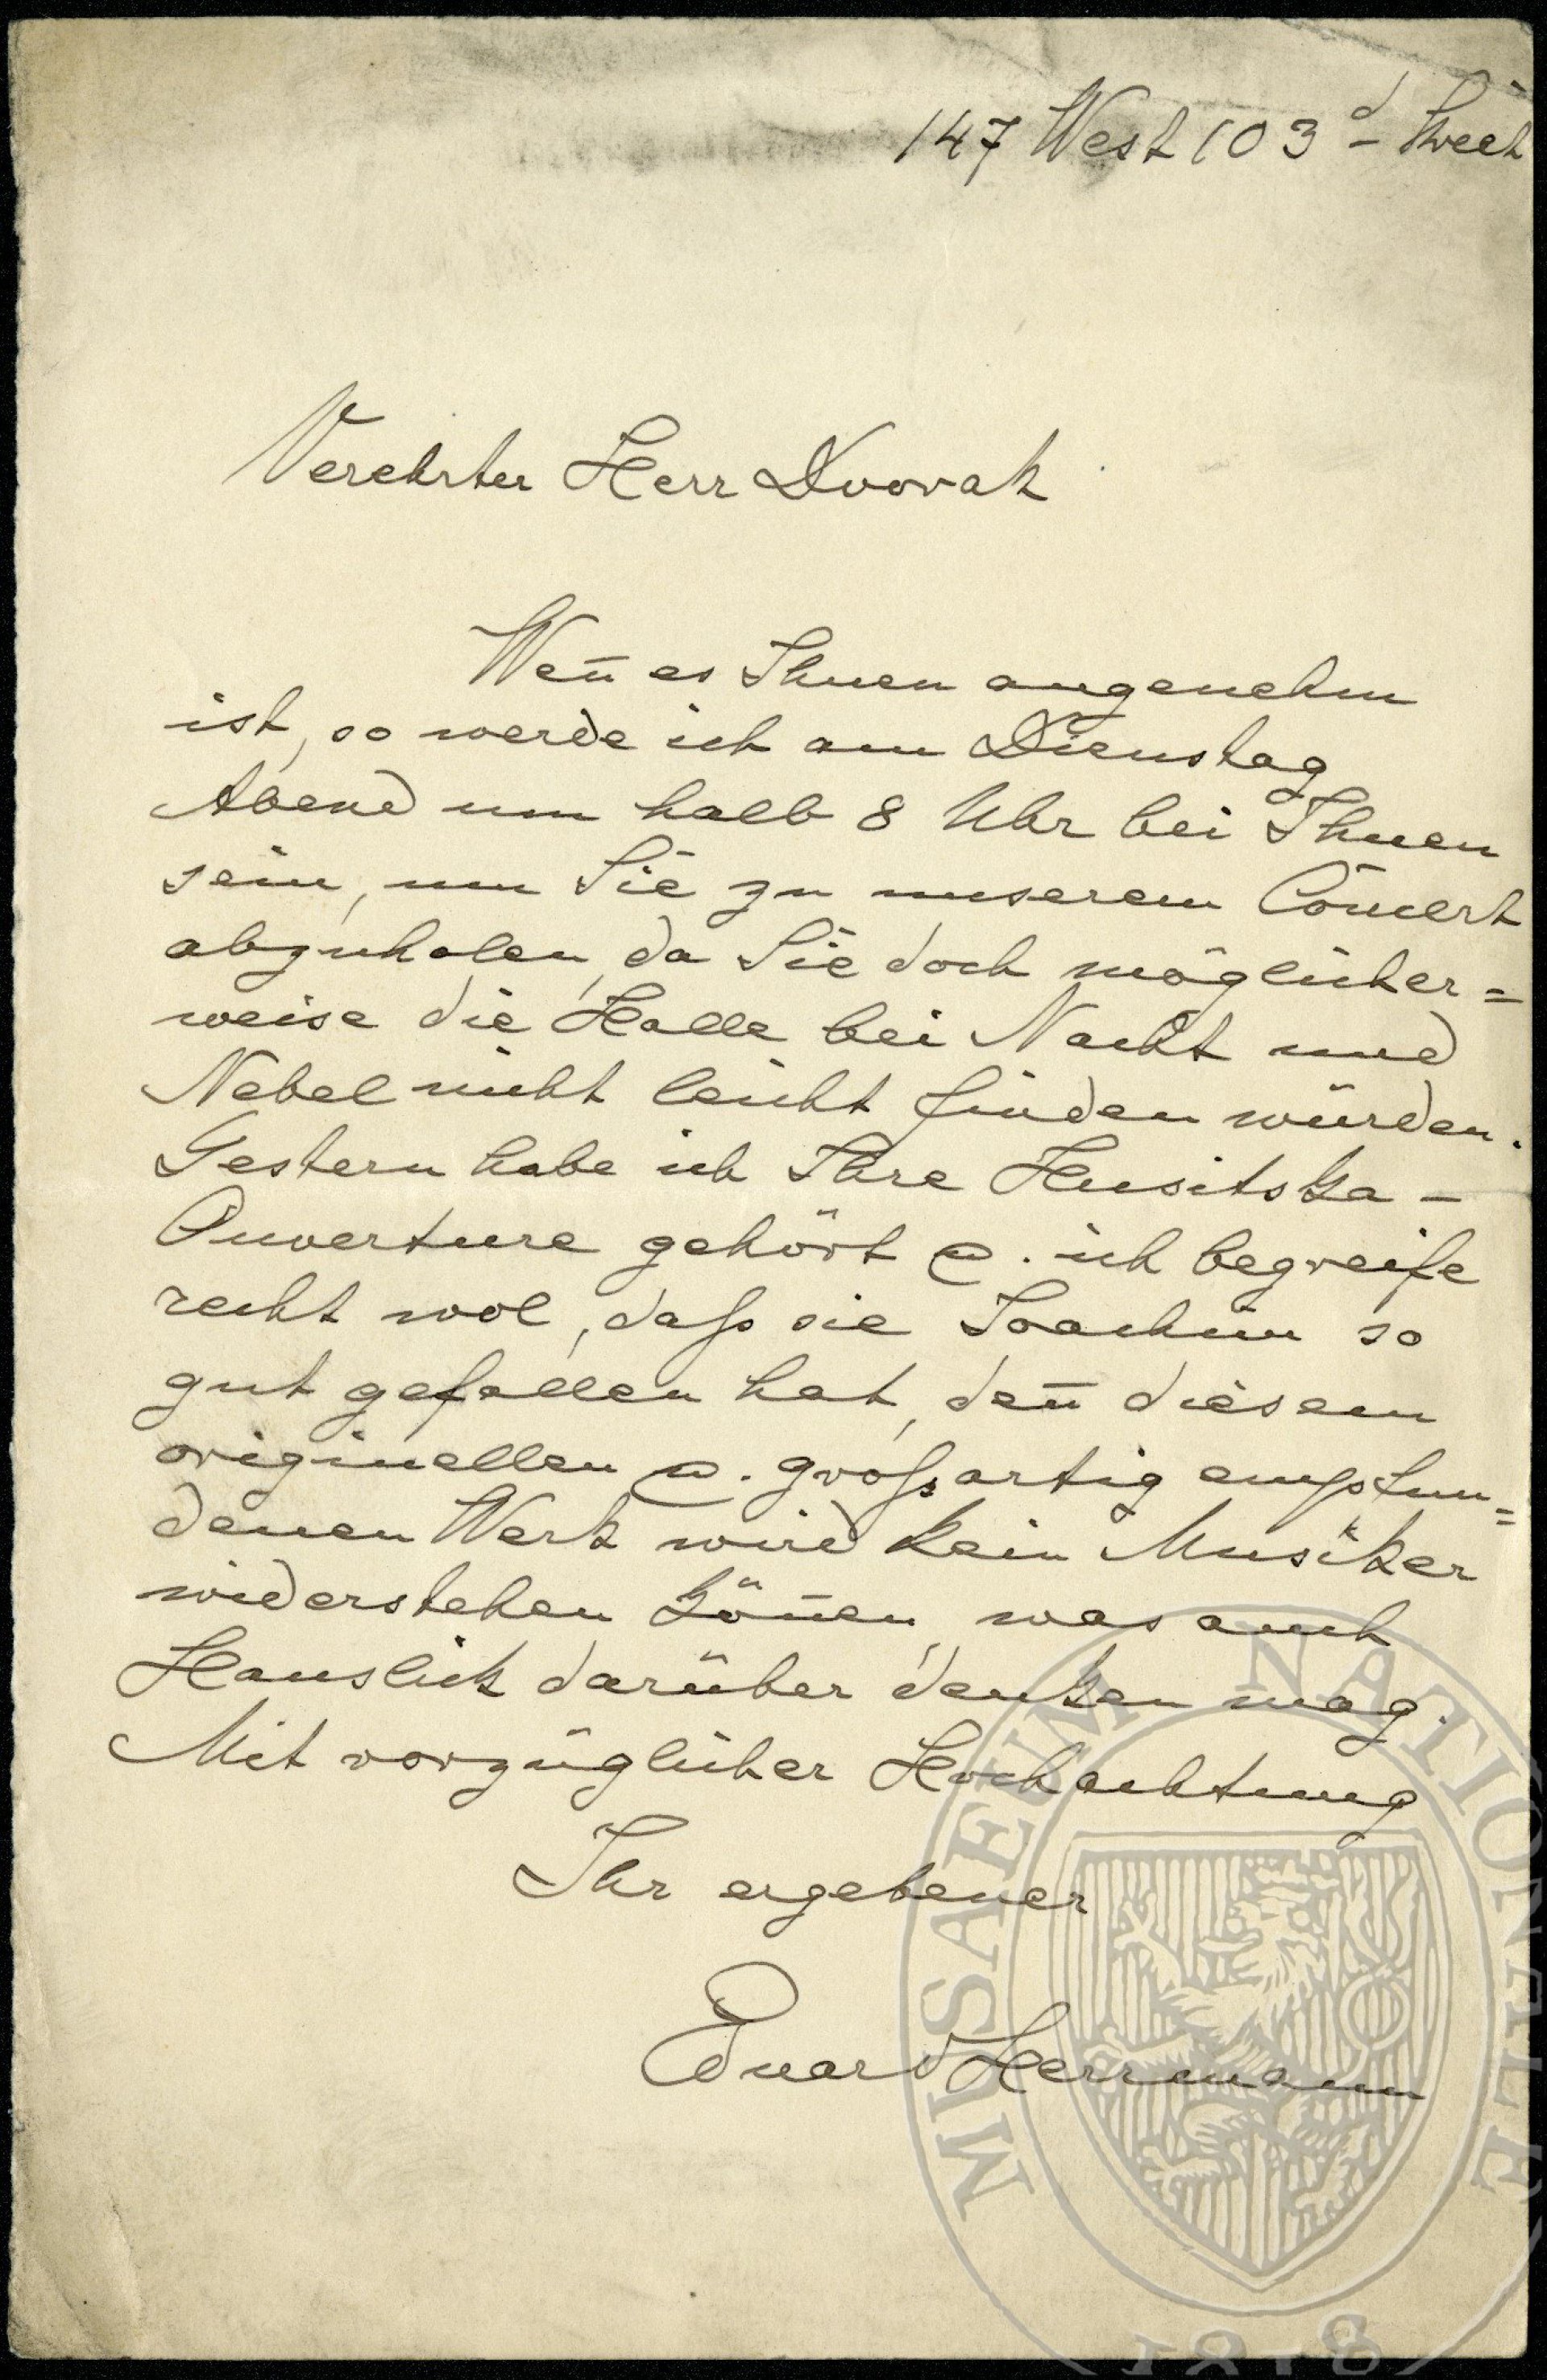 147 West 103d Street
Verehrter Herr Dvorak
Wen̄ es Ihnen angenehm
ist, so werde ich am Dienstag
Abend um halb 8 Uhr bei Ihnen
sein, um Sie zu unserem Concert
abzuholen, da Sie doch möglicher=
weise die Halle bei Nacht und
Nebel nicht leicht finden würden.
Gestern habe ich Ihre Husitska -
Ouverture gehört u. ich begreife
recht wol, daſs sie Joachim so
gut gefallen hat, den̄ diesem
originellen u. groſsartig empfun=
denen Werk wird kein Musiker
widerstehen kön̄en, was auch
Hanslick darüber denken mag.
Mit vorzüglicher Hochachtung
Ihr ergebener
Eduard Herrmann
MUSAEUM NATIONALE
1818